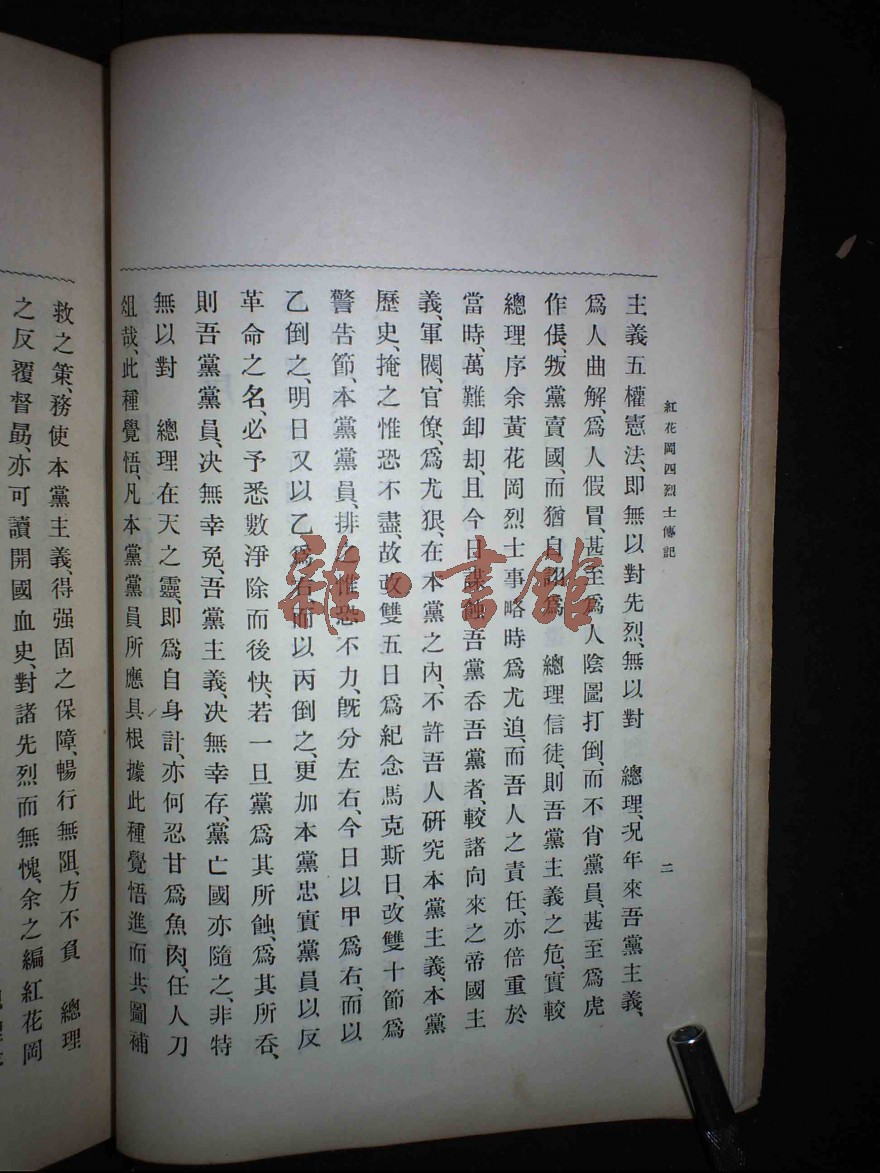 紅花岡四烈士傳記
二
主義五權憲法、即無以對先烈、無以對　總理、况年來吾黨主義、
爲人曲解、爲人假冒、甚至爲人陰圖打倒、而不肖黨員、甚至爲虎
作倀、叛黨賣國、而猶自詡爲　總理信徒、則吾黨主義之危、實較
總理序余黃花岡烈士事略時爲尤迫、而吾人之責任、亦倍重於
當時、萬難卸却、且今日謀蝕吾黨吞吾黨者、較諸向來之帝國主
義、軍閥、官僚、爲尤狠、在本黨之內、不許吾人研究本黨主義、本黨
歷史、掩之惟恐不盡、故改雙五日爲紀念馬克斯日、改雙十節爲
警告節、本黨黨員、排之惟恐不力、旣分左右、今日以甲爲右、而以
乙倒之、明日又以乙爲右、而以丙倒之、更加本黨忠實黨員以反
革命之名、必予悉數淨除而後快、若一旦黨爲其所蝕、爲其所吞、
則吾黨黨員、决無幸免、吾黨主義、决無幸存、黨亡國亦隨之、非特
無以對　總理在天之靈、即爲自身計、亦何忍甘爲魚肉、任人刀
俎哉、此種覺悟、凡本黨黨員所應具、根據此種覺悟、進而共圖補
救之策、務使本黨主義、得强固之保障、暢行無阻、方不負　總理
之反覆督勗、亦可讀開國血史、對諸先烈而無愧、余之編紅花岡
雜·書館